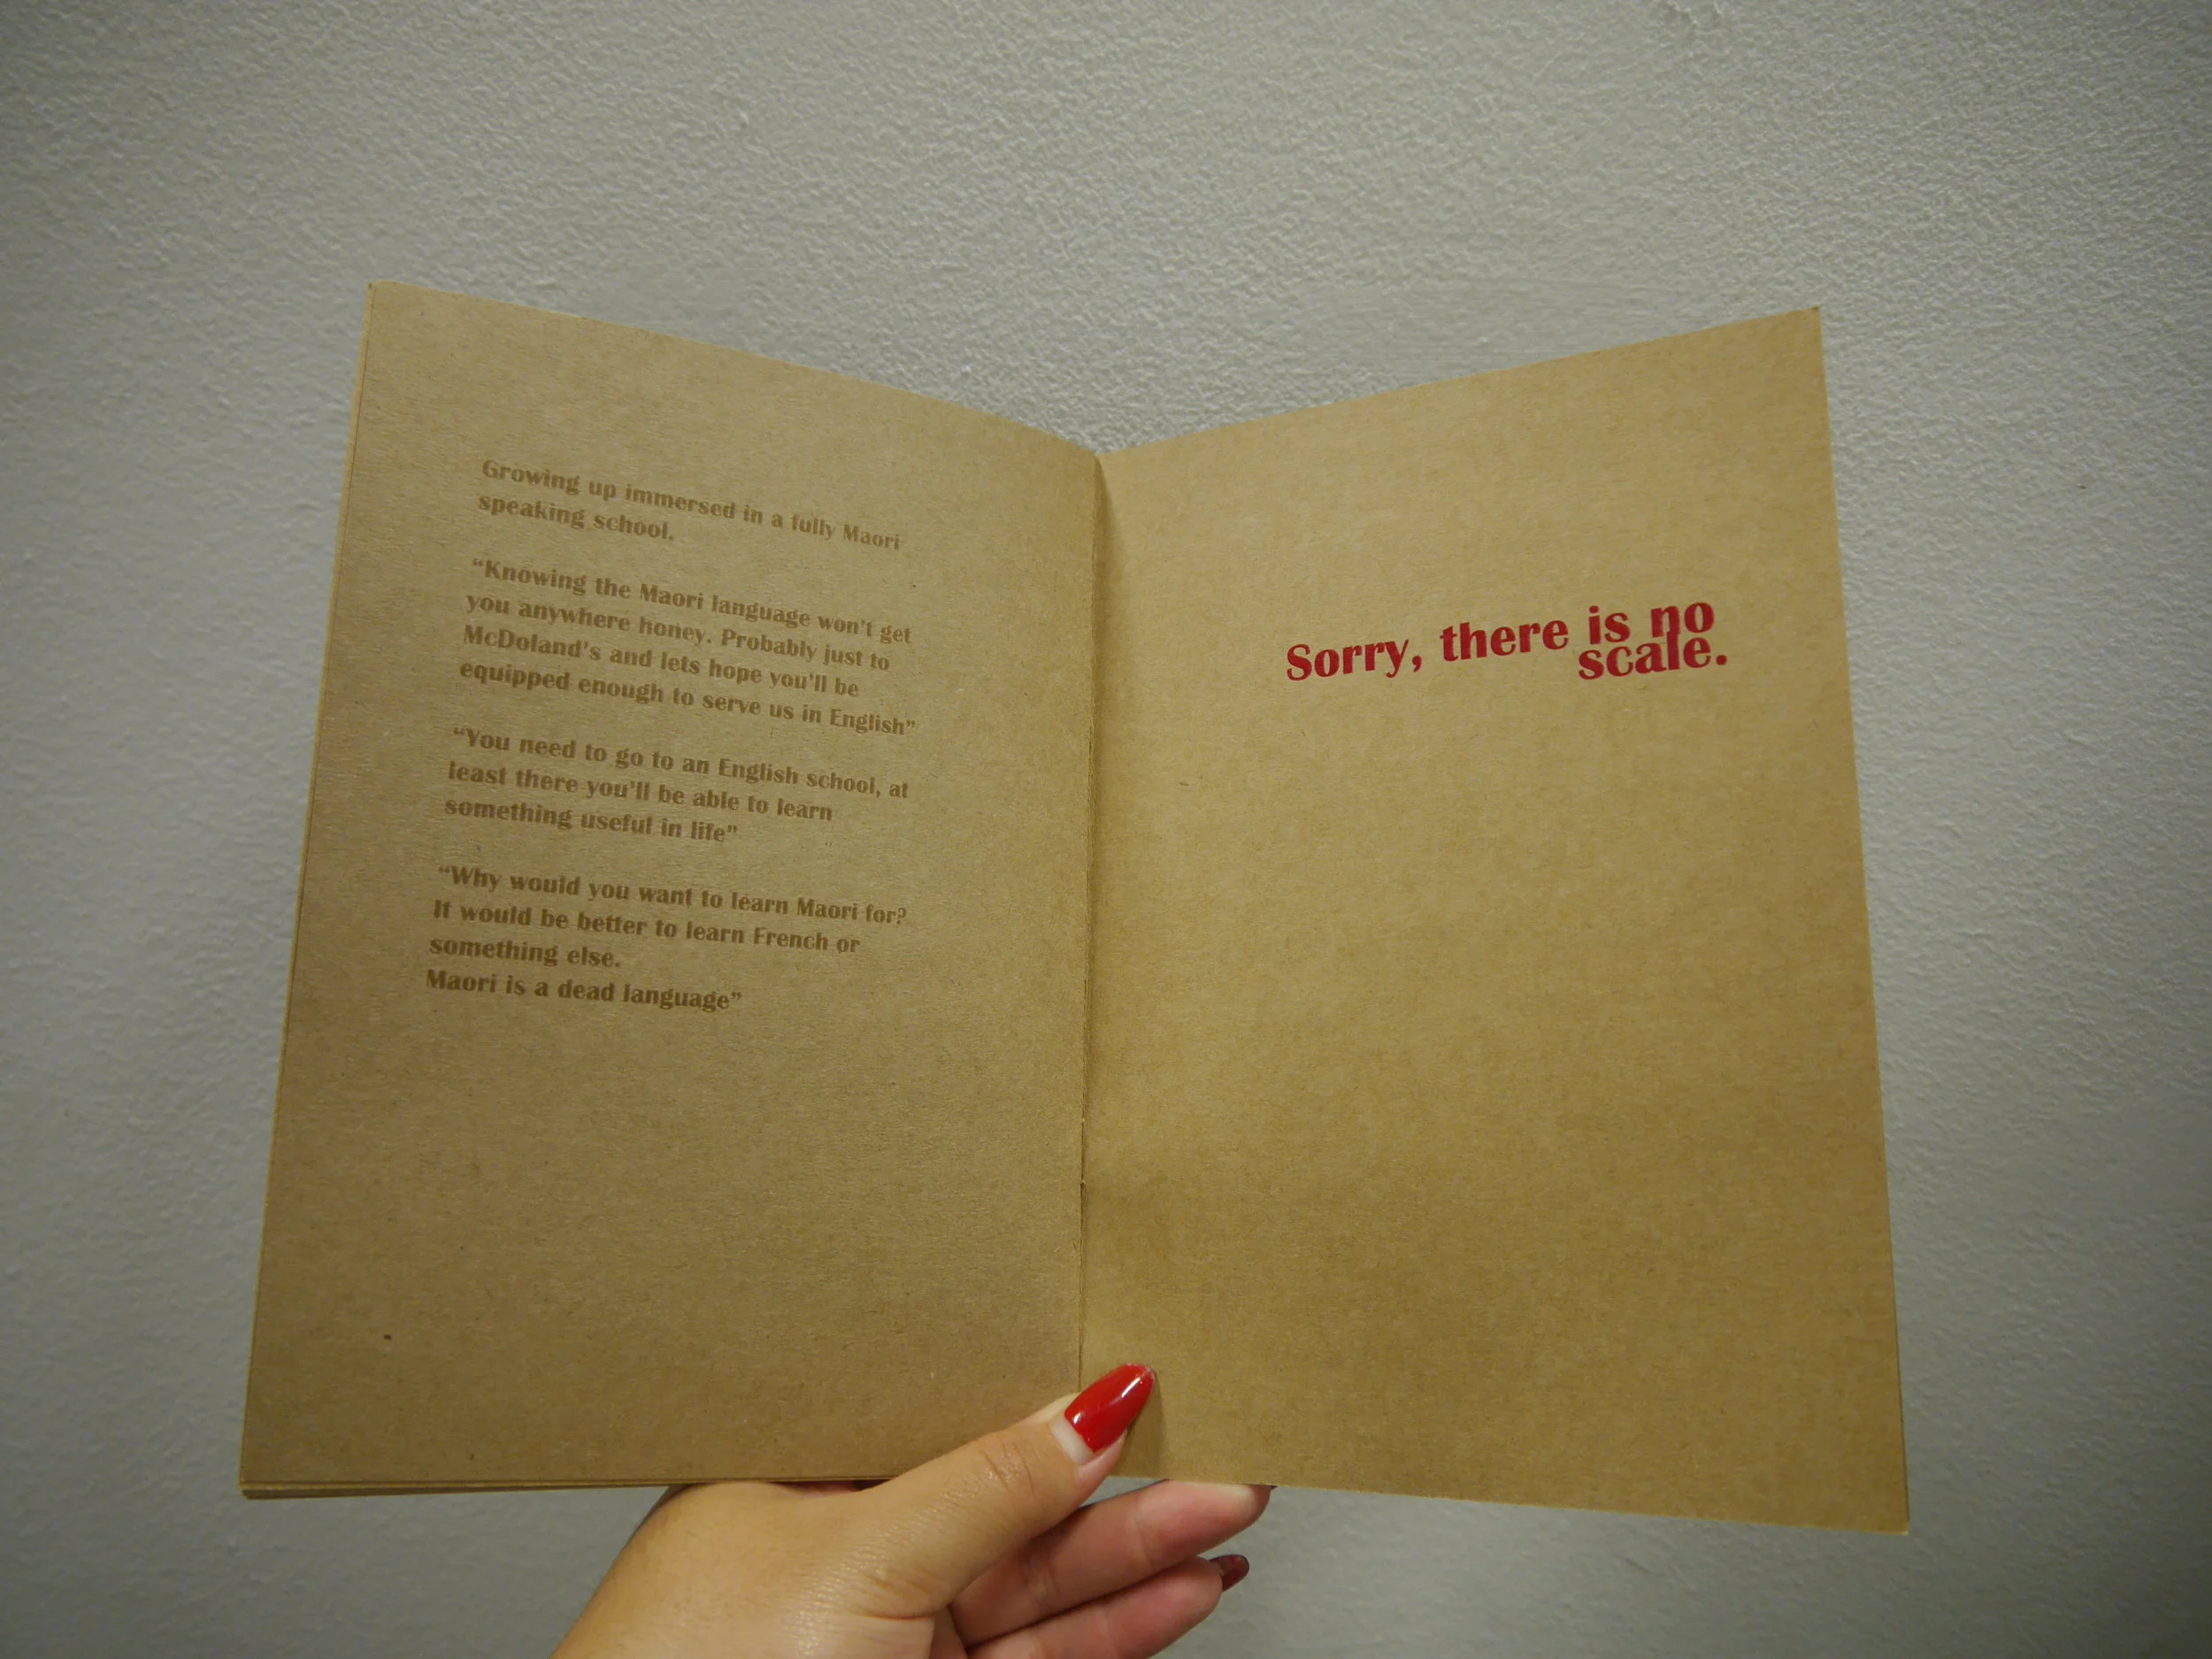 Growing up immersed in a fully Maori
speaking school.
“Knowing the Maori language won't get
you anywhere honey. Probably just to
McDoland's and lets hope you'll be
equipped enough to serve us in English”
“You need to go to an English school, at
least there you'll be able to learn
something useful in life”
“Why would you want to learn Maori for?
It would be better to learn French or
something else.
Maori is a dead language”
Sorry, there is no
scale.